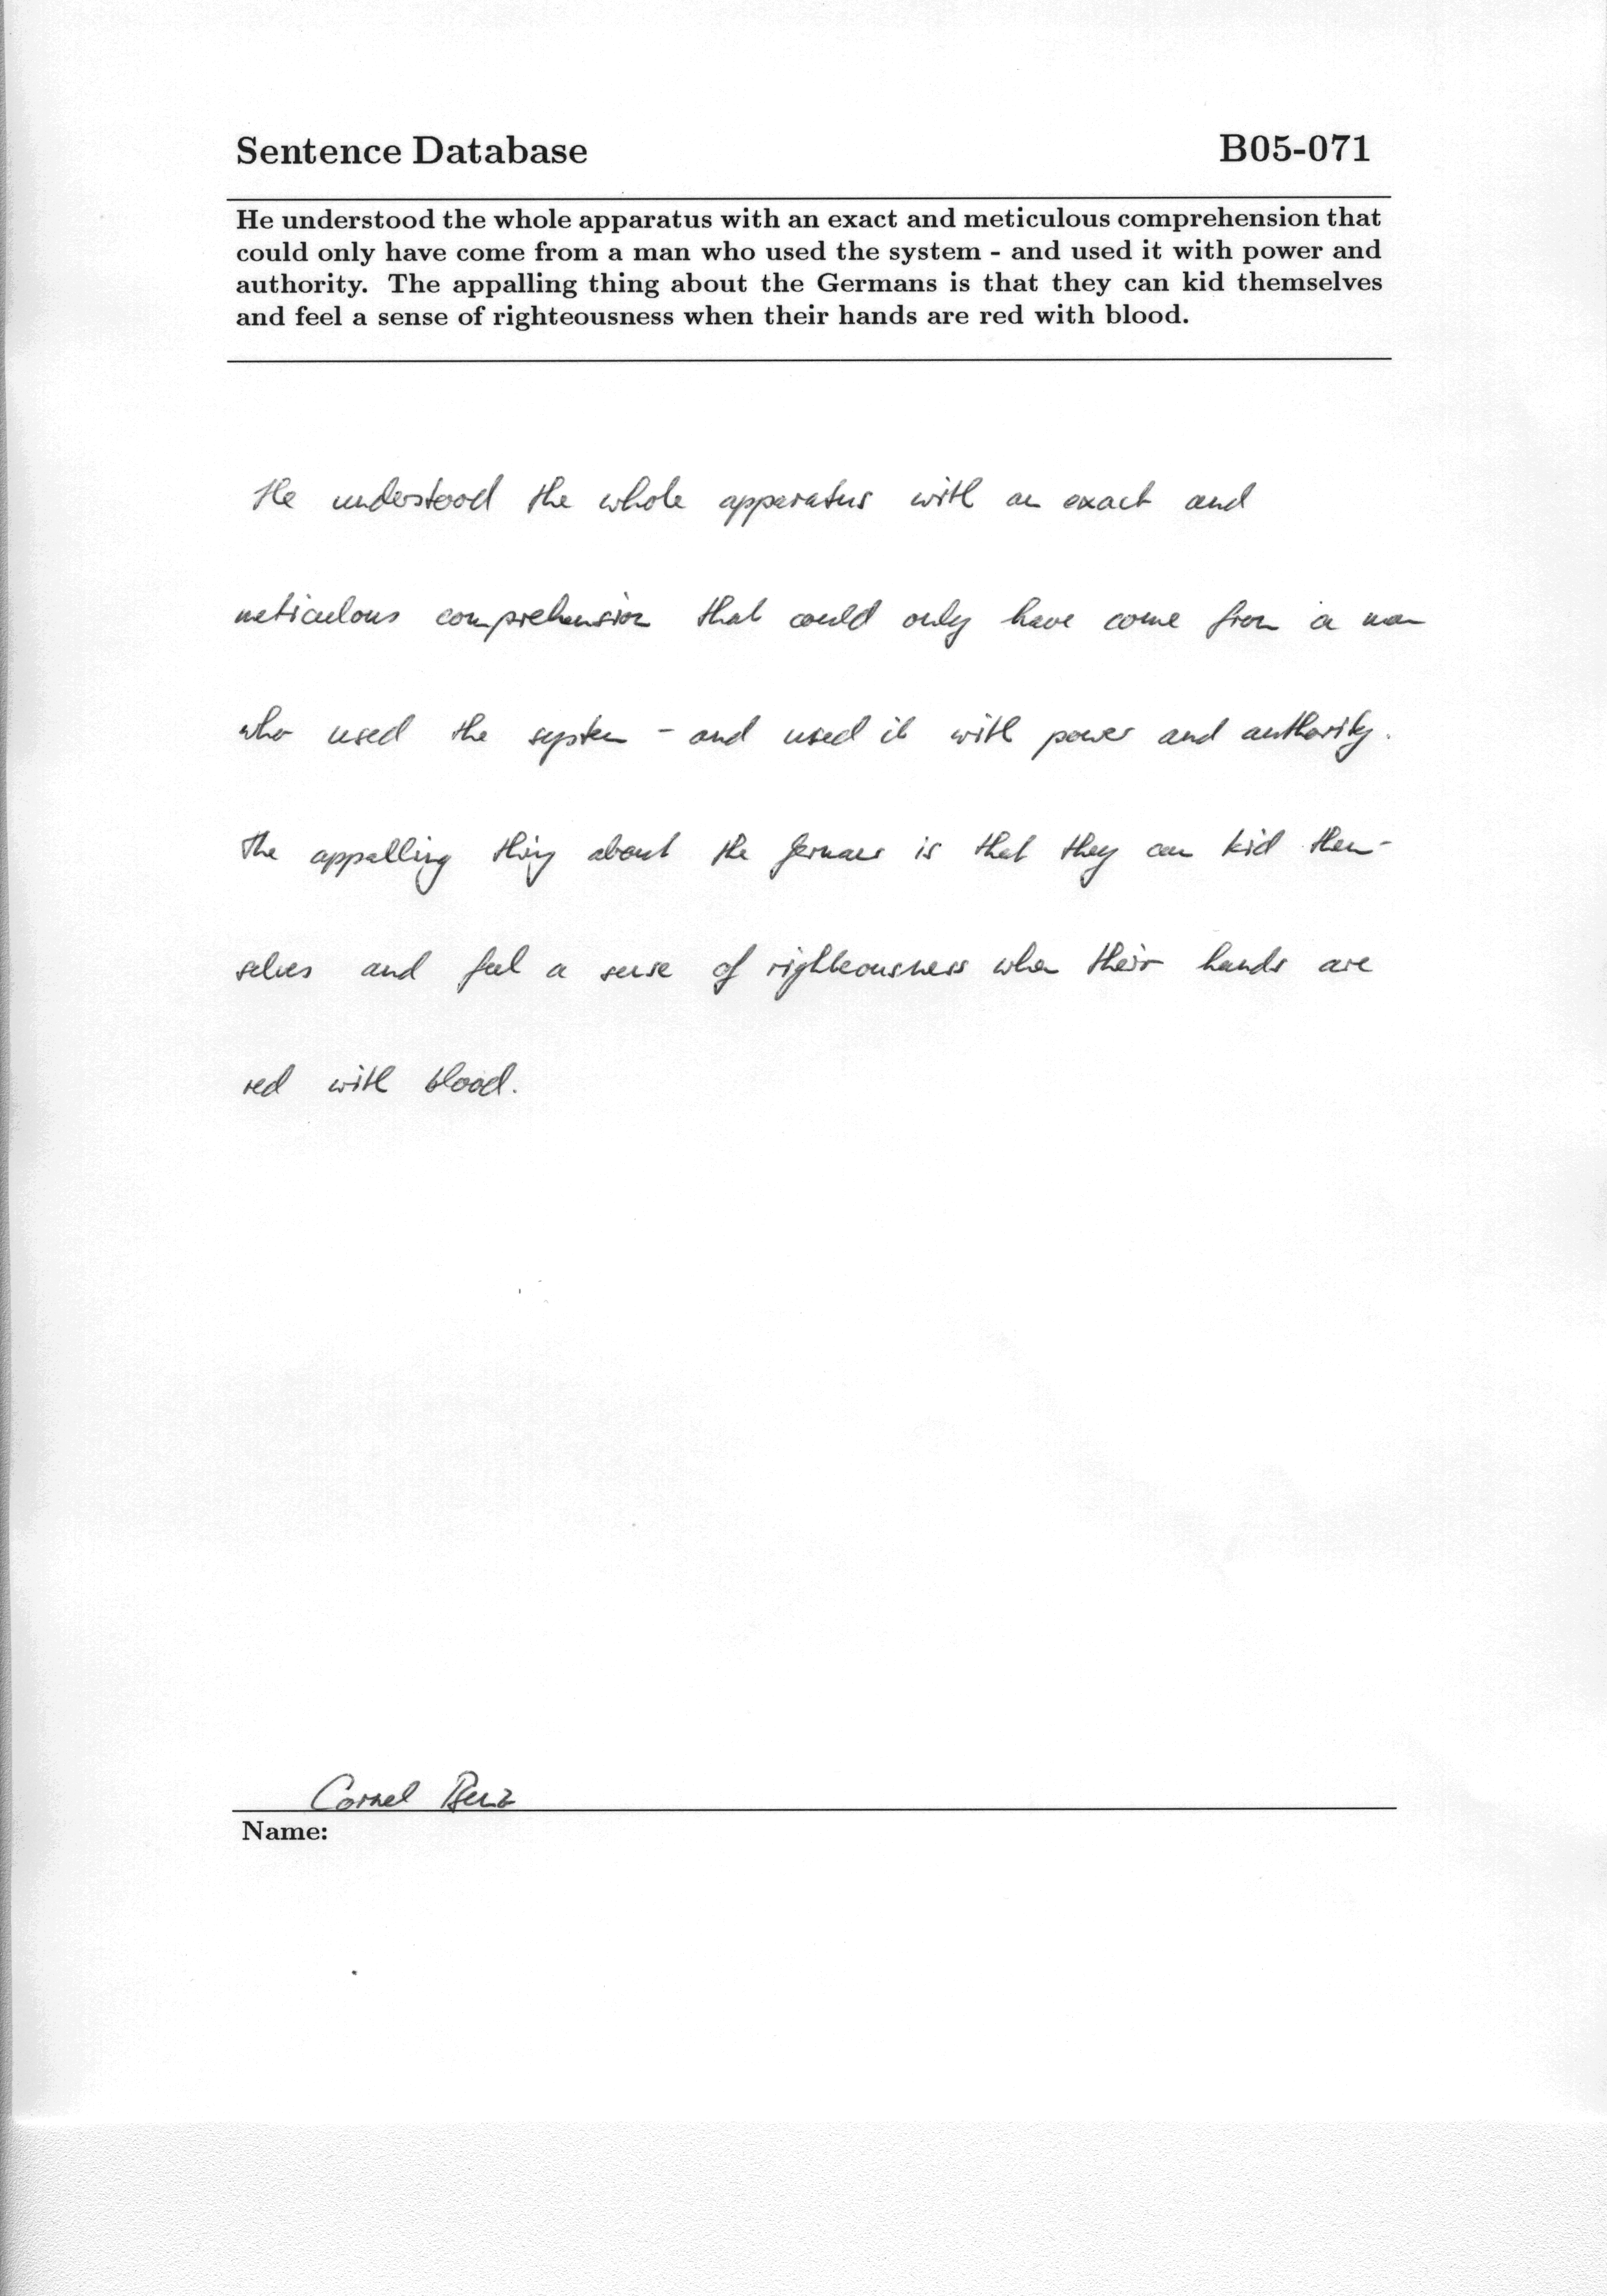 Sentence Database B05-071
He understood the whole apparatus with an exact and meticulous comprehension that
could only have come from a man who used the system - and used it with power and
authority. The appalling thing about the Germans is that they can kid themselves
and feel a sense of righteousness when their hands are red with blood.
He understood the whole apparatus with an exact and
meticulous comprehension that could only have come from a man
who used the system - and used it with power and authority.
The appalling thing about the Germans is that they can kid them-
selves and feel a sense of righteousness when their hands are
red with blood.
Cornel
Name: